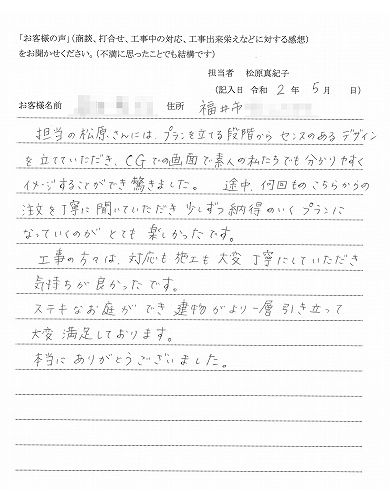 「お客様の声」（商談、打合せ、工事中の対応、工事出来栄えなどに対する感想）
をお聞かせください。（不満に思ったことでも結構です）
担当者　松原真紀子
（記入日　令和　2　年　5　月　　日）
お客様名前　　　　住所　福井市
担当の松原さんには、プランを立てる段階からセンスのあるデザイン
を立てていただき、CGでの画面で素人の私たちでも分かりやすく
イメージすることができ驚きました。　途中、何回ものこちらからの
注文を丁寧に聞いていただき少しずつ納得のいくプランに
なっていくのがとても楽しかったです。
工事の方々は、対応も施工も大変丁寧にしていただき
気持ちが良かったです。
ステキなお庭ができ建物がより一層引き立って
大変満足しております。
本当にありがとうございました。